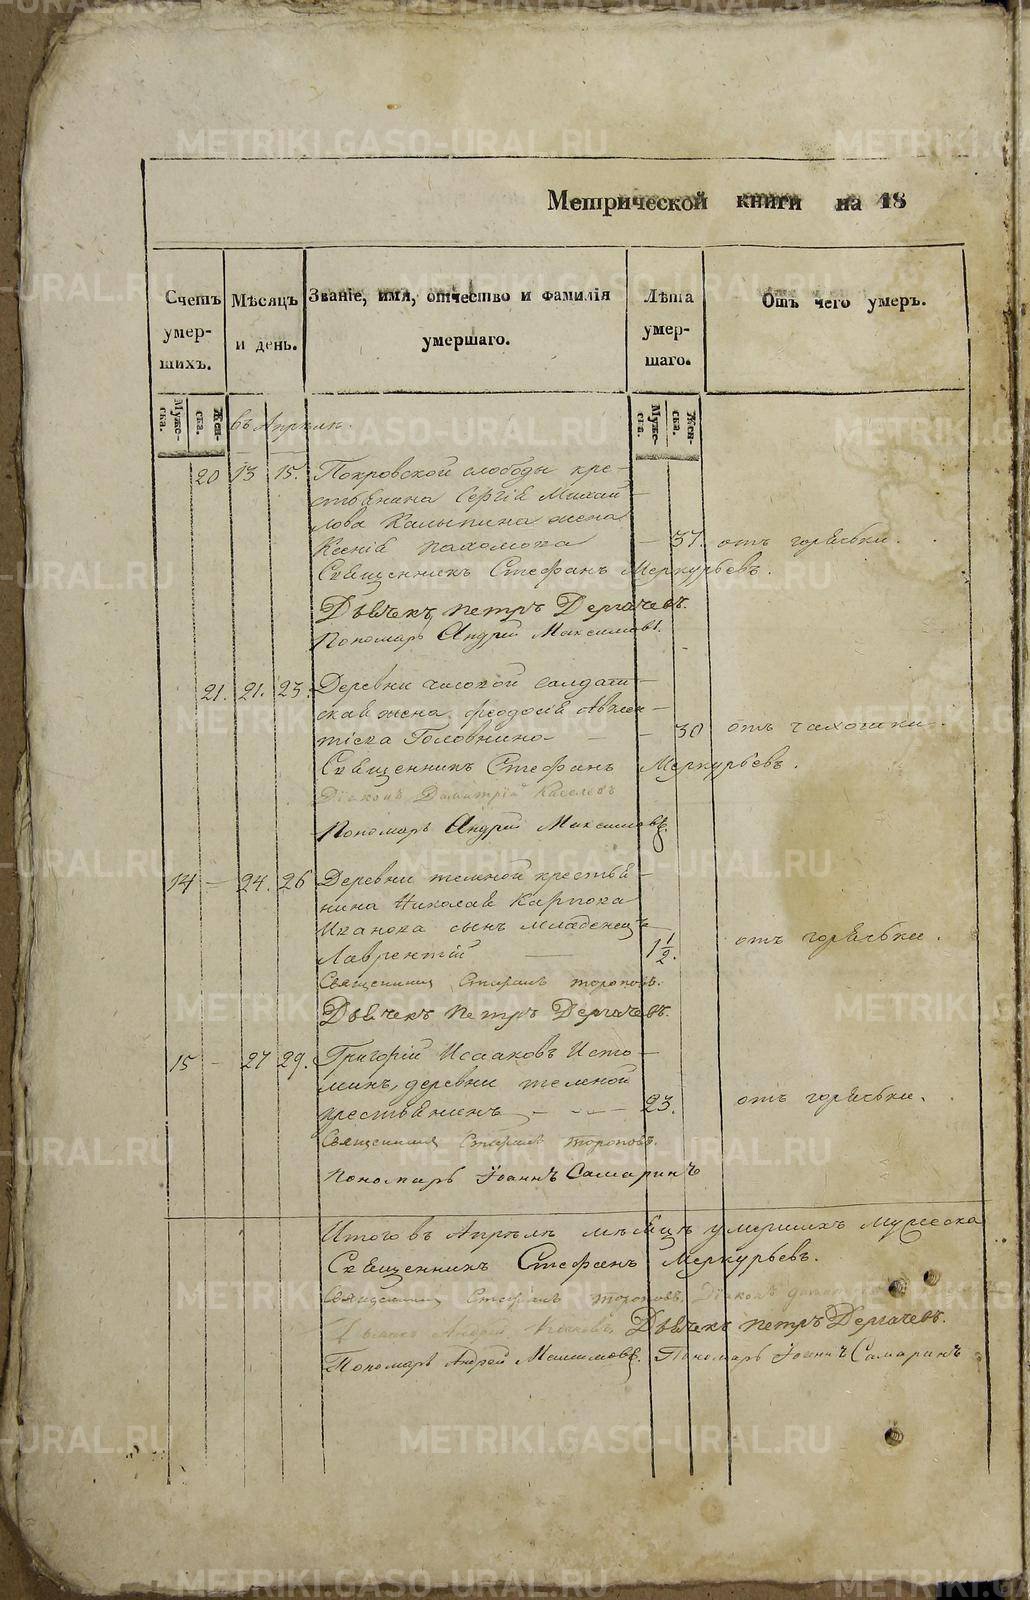 Метрической книги на 18
Счетъ умер-шихъ.
Мѣсяцъ и день.
Званіе, имя, отчество и фамилія умершаго.
Лѣта умер-шаго.
Отъ чего умеръ.
Мужс-ска. Жен-ска.
въ Апрѣлѣ.
Мужс-ска. Жен-ска.
20 13 15. Покровской слободы кре-
стьянина Сергія Михай-
лова Калыпина жена
Ксенія Пахомова — 37. отъ горячки.
Священникъ Стефанъ Меркурьевъ.
Дьячекъ Петръ Дергачевъ.
Пономарь Андрей Максимовъ.
21. 21. 23. Деревни солдат-
ская жена Феодосія
Головнина — — 30 отъ чахотки.
Священникъ Стефанъ Меркурьевъ.
Діаконъ Димитрій Киселевъ
Пономарь Андрей Максимовъ.
14 — 24. 26 Деревни темной крестья-
нина Николая Карпова
Иванова сынъ младенецъ
Лаврентій — 1 1/2. отъ горячки.
Священникъ Стефанъ Тороповъ.
Дьячекъ Петръ Дергачевъ.
15 — 27 29. Григорій Исааковъ Исто-
минъ, деревни темной
крестьянинъ — — — 23. отъ горячки.
Священникъ Стефанъ Тороповъ.
Пономарь Іоаннъ Самаринъ
Итого въ Апрѣлѣ мѣсяцѣ умершихъ мужеска
Священникъ Стефанъ Меркурьевъ.
Священникъ Стефанъ Тороповъ. Діаконъ
Андрей Дьячекъ Петръ Дергачевъ.
Пономарь Андрей Максимовъ. Пономарь Іоаннъ Самаринъ
METRIKI.GASO-URAL.RU